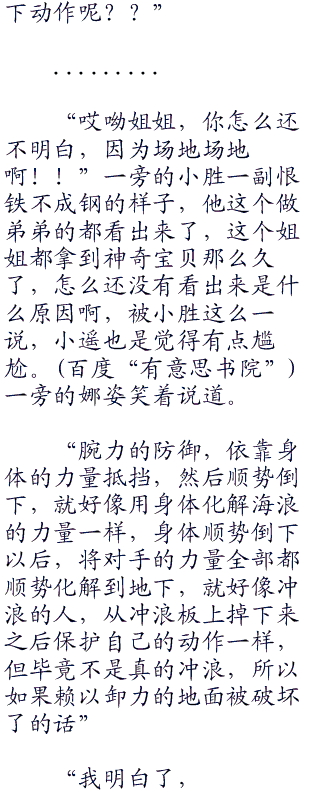 下动作呢？？”
．．．．．．．．．
“哎呦姐姐，你怎么还
不明白，因为场地场地
啊！！”一旁的小胜一副恨
铁不成钢的样子，他这个做
弟弟的都看出来了，这个姐
姐都拿到神奇宝贝那么久
了，怎么还没有看出来是什
么原因啊，被小胜这么一
说，小遥也是觉得有点尴
尬。(百度“有意思书院”)
一旁的娜姿笑着说道。
“腕力的防御，依靠身
体的力量抵挡，然后顺势倒
下，就好像用身体化解海浪
的力量一样，身体顺势倒下
以后，将对手的力量全部都
顺势化解到地下，就好像冲
浪的人，从冲浪板上掉下来
之后保护自己的动作一样，
但毕竟不是真的冲浪，所以
如果赖以卸力的地面被破坏
了的话”
“我明白了，